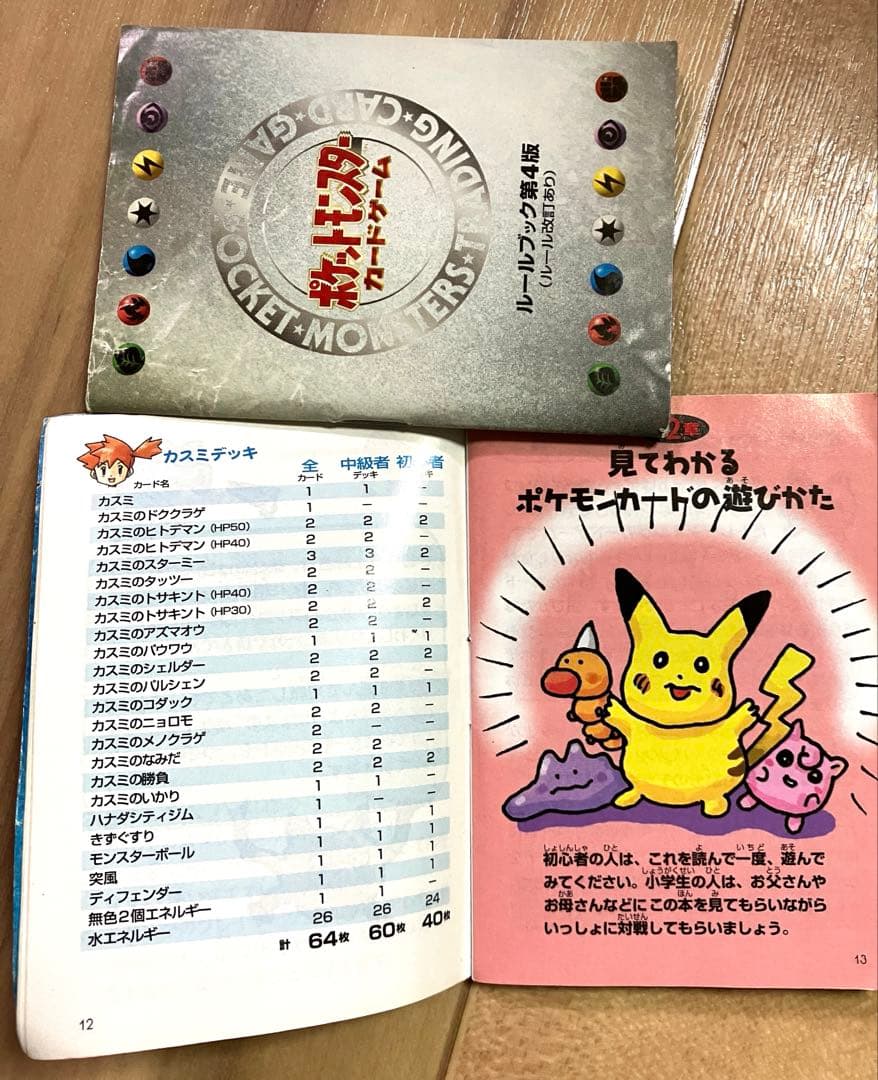 ポケットモンスター
カードゲーム
POCKET★MONSTERS★TRADING★CARD★GAME
ルールブック第4版
(ルール改訂あり)
カスミデッキ
カード名 全カード 中級者デッキ 初
カスミ 1 1 −
カスミのドククラゲ 1 − −
カスミのヒトデマン(HP50) 2 2 2
カスミのヒトデマン(HP40) 2 2 −
カスミのスターミー 3 3 2
カスミのタッツー 2 2 −
カスミのトサキント(HP40) 2 2 −
カスミのトサキント(HP30) 2 2 2
カスミのアズマオウ 2 2 −
カスミのパウワウ 1 1 1
カスミのシェルダー 2 2 2
カスミのパルシェン 2 2 −
カスミのコダック 1 1 1
カスミのニョロモ 2 2 −
カスミのメノクラゲ 2 − −
カスミのなみだ 2 2 −
カスミの勝負 2 2 2
カスミのいかり 1 1 −
ハナダシティジム 1 − −
きずぐすり 1 1 1
モンスターボール 1 1 1
突風 1 1 1
ディフェンダー 1 1 1
無色2個エネルギー 1 1 −
水エネルギー 26 26 24
計 64枚 60枚 40枚
12
2章
見てわかる
ポケモンカードの遊びかた
初心者の人は、これを読んで一度、遊んで
みてください。小学生の人は、お父さんや
お母さんなどにこの本を見てもらいながら
いっしょに対戦してもらいましょう。
13